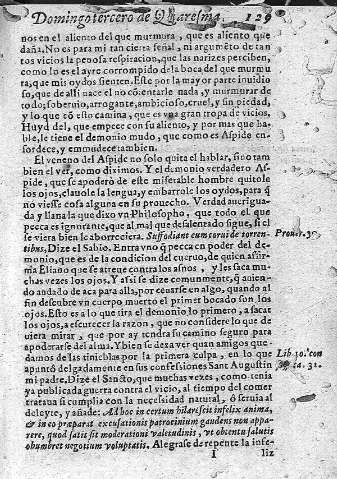 Domingo tercero de Quaresma. 129
nos en el aliento del que murmura, que es aliento que
daña. No es para mi tan cierta señal, ni argumẽto de tan
tos vicios la penosa respiracion, que las narizes perciben,
como lo es el ayre corrompido de la boca del que murmu
ra, que mis oydos sienten. Este por la mayor parte inuidio
so, que de alli nace el no cõtentarle nada, y murmurar de
todo; soberuio, arrogante, ambicioso, cruel, y sin piedad,
y lo que cõ esto camina, que es vna gran tropa de vicios.
Huyd del, que empece con su aliento, y por mas que ha-
ble, le tiene el demonio mudo, que como es Aspide en-
sordece, y enmudece tambien.
El veneno del Aspide no solo quita el hablar, sino tam
bien el ver, como diximos. Y el demonio verdadero As-
pide, que se apoderò de este miserable hombre quitole
los ojos, clauole la lengua, y embarrole los oydos, para q̃
no viesse cosa alguna en su prouecho. Verdad aueri gua-
da y llana la que dixo vn Philosopho, que todo el que
pecca es ignorante, que al mal que desalentado sigue, si el
se viera bien le aborreciera. Suffodiant eum corui de torren-
Prouer. 30
tibus. Dize el Sabio. Entra vno q̃ pecca en poder del de-
monio, que es de la condicion del cueruo, de quien afir-
ma Eliano que se atreue contra los asnos, y les saca mu-
chas vezes los ojos. Y assi se dize comunmente, q̃ auien-
do andado de aca para alla, por cebarse en algo, quando al
fin descubre vn cuerpo muerto el primer bocado son los
ojos. Esto es a lo que tira el demonio lo primero, a sacar
los ojos, a escurecer la razon, que no considere lo que de
uiera mirar, que por ay tendra su camino seguro para
apoderarse del alma. Y bien se dexa ver quan amigos que-
damos de las tinieblas por la primera culpa, en lo que
Lib. 10. con
apuntò delgadamente en sus confessiones Sant Augustin
ca. 31.
mi padre. Dize el Santo, que muchas vezes, como tenia
ya publicada guerra contra el vicio, al tiempo del comer
trataua si cumplia con la necessidad natural, ò seruia al
deleyte, y añade: Ad hoc in certum hilarescit infelix anima,
& in eo præparat excusationis patrocinium gaudens non appa-
rere, quod satis sit moderationi valetudinis, vt obtentu salutis
obumbret negotium voluptatis. Alegrase de repente la infe-
I liz